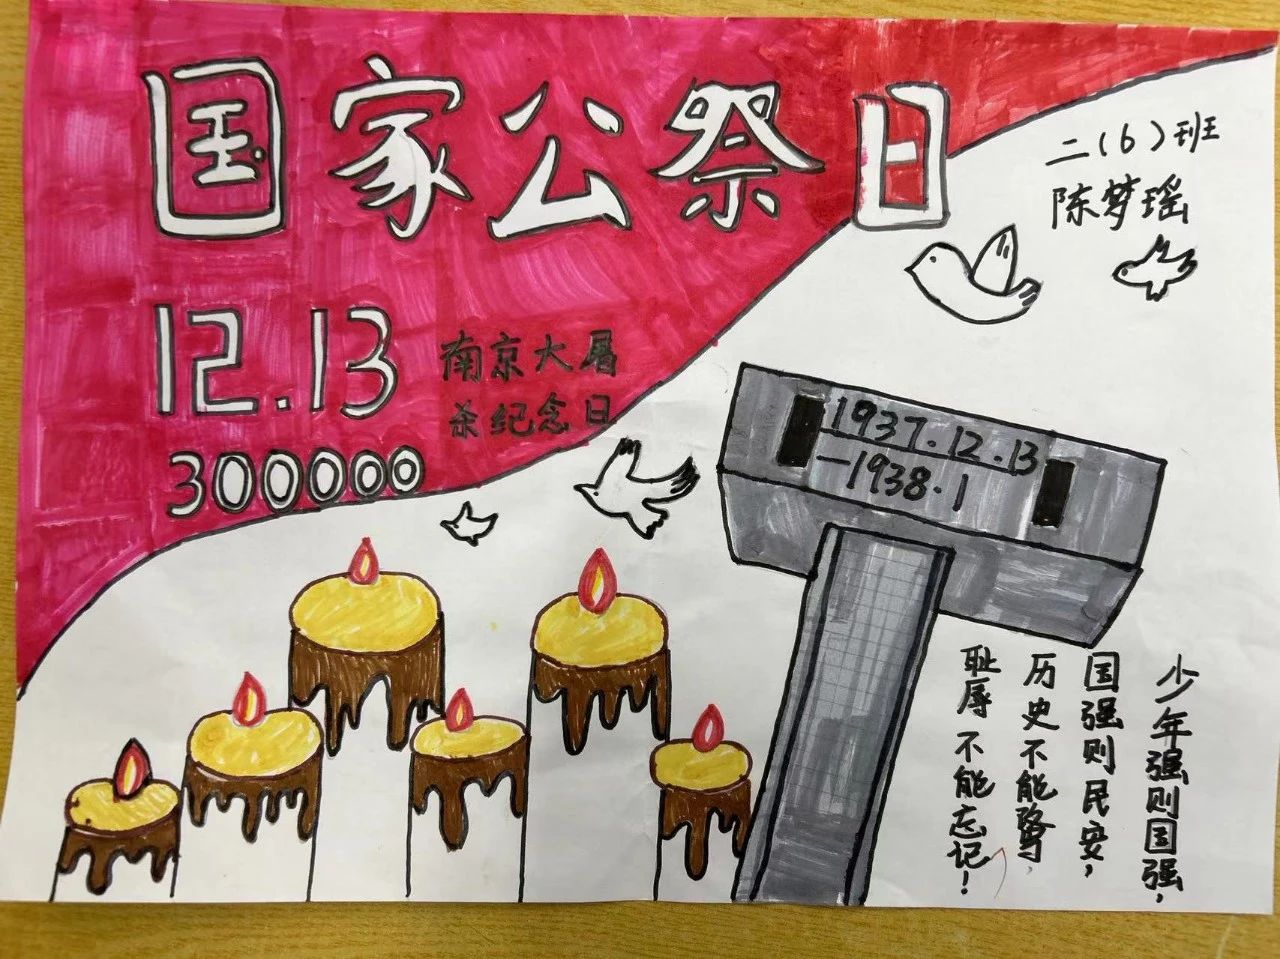 国家公祭日
二(6)班
陈梦瑶
12.13
南京大屠
杀纪念日
300000
1937.12.13
—1938.1
少年强则国强，
国强则民安，
历史不能
耻辱不能忘记！